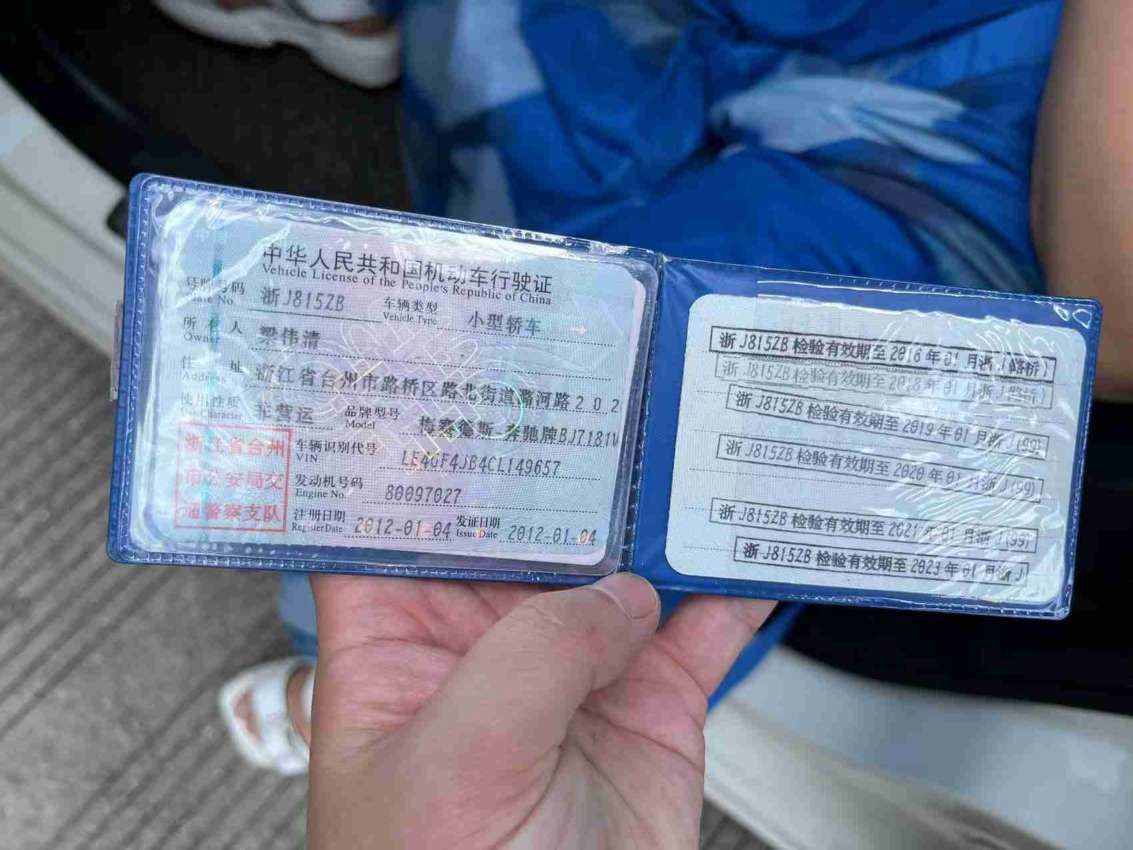 中华人民共和国机动车行驶证
Vehicle License of the People's Republic of China
号牌号码 Plate No. 浙J815ZB 车辆类型 Vehicle Type 小型轿车
所有人 Owner 梁伟清
住址 Address 浙江省台州市路桥区路北街道潞河路202
使用性质 Use Character 非营运 品牌型号 Model 梅赛德斯-奔驰牌BJ7181V
浙江省台州
市公安局交
通警察支队
车辆识别代号 VIN LE4GF4JB4CL149657
发动机号码 Engine No. 80097027
注册日期 Register Date 2012-01-04 发证日期 Issue Date 2012-01-04
浙J815ZB 检验有效期至2016年01月浙J(路桥)
浙J815ZB 检验有效期至2018年01月浙J(路桥)
浙J815ZB 检验有效期至2019年01月浙J(99)
浙J815ZB 检验有效期至2020年01月浙J(99)
浙J815ZB 检验有效期至2021年01月浙J(99)
浙J815ZB 检验有效期至2023年01月浙J